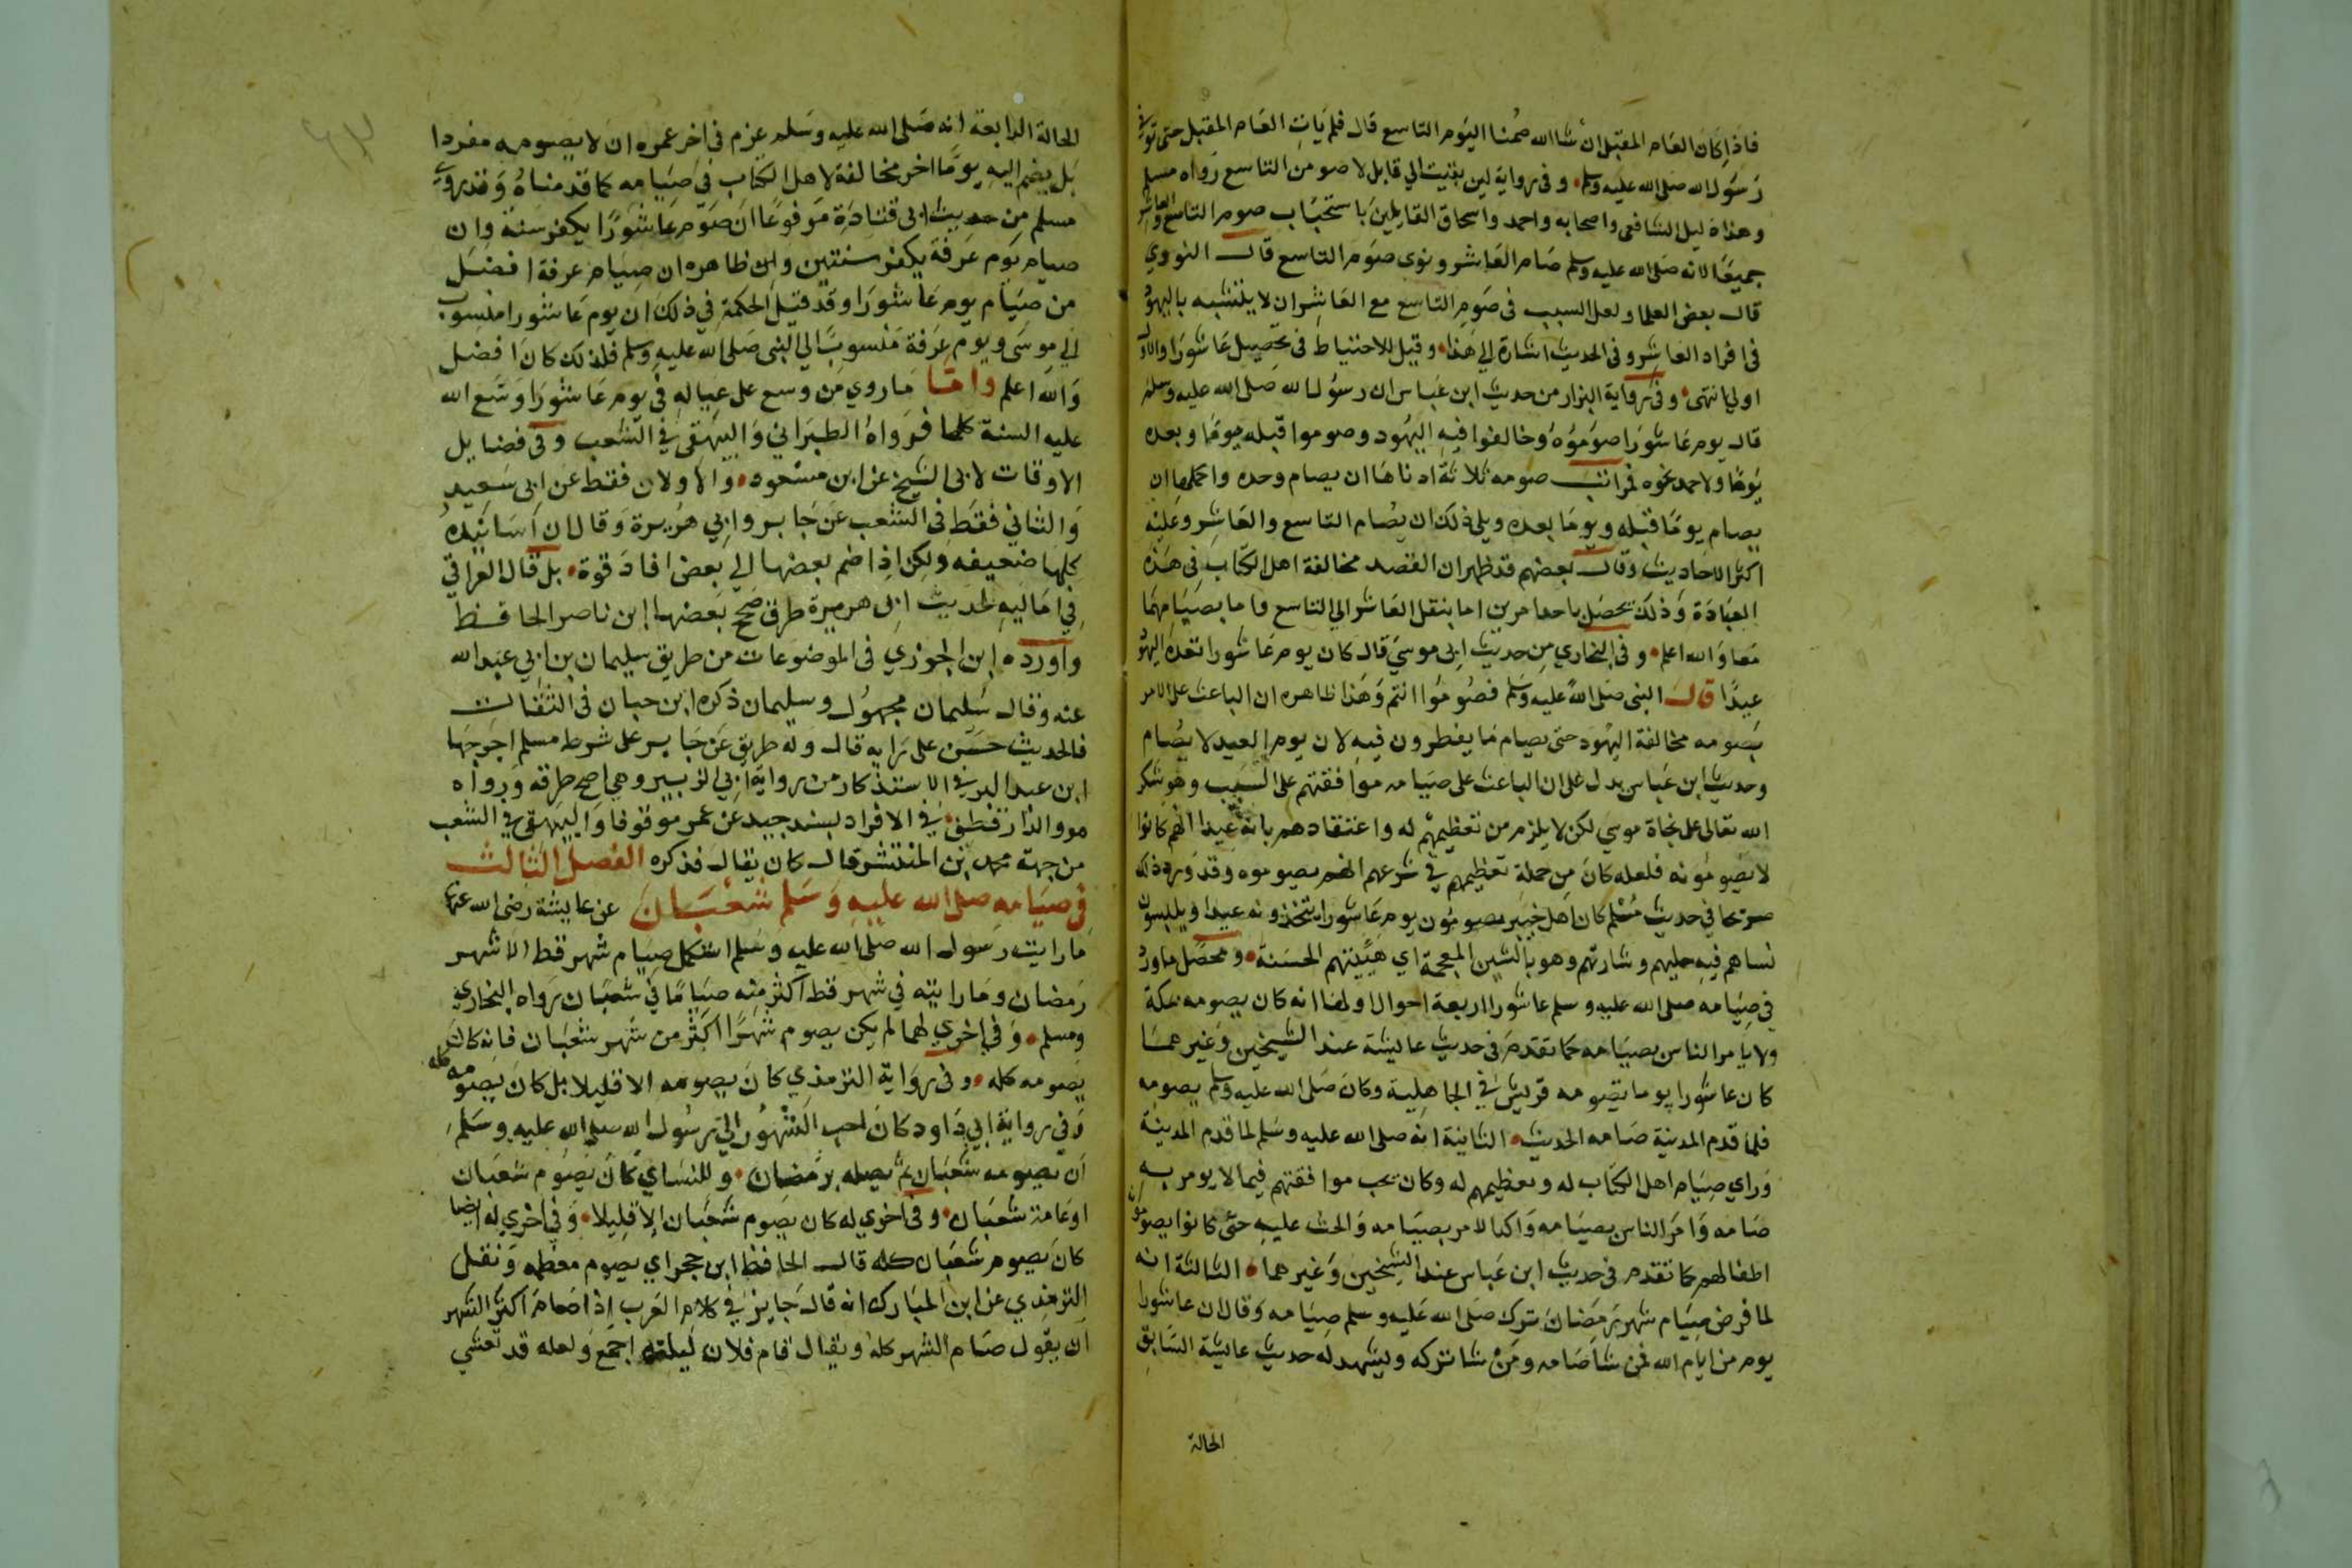 فاذا كان العام المقبل ان شا الله صمنا اليوم التاسع قال فلم يات العام المقبل حتى توفي
رسول الله صلى الله عليه وسلم وفي رواية لين بقيت الي قابل لاصومن التاسع رواه مسلم
وهذا دليل الشافعي واصحابه واحمد واسحاق القايلين باستحباب صوم التاسع والعاشر
جميعا لانه صلى الله عليه وسلم صام العاشر ونوى صوم التاسع قال النووي
قال بعض العلما ولعل السبب في صوم التاسع مع العاشر ان لا يتشبه باليهود
في افراد العاشر وفي الحديث اشارة الي هذا وقيل للاحتياط في تحصيل عاشورا والاول
اولي انتهى وفي رواية البزار من حديث ابن عباس ان رسول الله صلى الله عليه وسلم
قال يوم عاشورا صوموه وخالفوا فيه اليهود وصوموا قبله يوما وبعده
يوما ولاحمد نحوه فمراتب صومه ثلاثة ادناها ان يصام وحده واكملها ان
يصام يوما قبله ويوما بعده ويلي ذلك ان يصام التاسع والعاشر وعليه
اكثر الاحاديث وقال بعضهم قد ظهر ان القصد مخالفة اهل الكتاب في هذه
العبادة وذلك يحصل باحد امرين اما بنقل العاشر الي التاسع واما بصيامهما
معا والله اعلم وفي البخاري من حديث ابي موسي قال كان يوم عاشورا تعده اليهود
عيدا قال النبي صلى الله عليه وسلم فصوموا انتم وهذا ظاهره ان الباعث على الامر
بصومه مخالفة اليهود حتى يصام ما يفطرون فيه لان يوم العيد لا يصام
وحديث ابن عباس يدل على ان الباعث على صيامه موافقتهم على السبب وهو شكر
الله تعالى على نجاة موسي لكن لا يلزم من تعظيمهم له واعتقادهم بانه عيدا انهم كانوا
لا يصومونه فلعله كان من جملة تعظيمهم في شرعهم انهم يصوموه وقد ورد ذلك
صريحا في حديث مسلم كان اهل خيبر يصومون يوم عاشورا يتخذونه عيدا ويلبسون
نساهم فيه حليهم وشارتهم وهو بالشين المعجمة اي هييتهم الحسنة ومحصل ما ورد
في صيامه صلى الله عليه وسلم عاشورا اربعة احوال اولها انه كان يصومه بمكة
ولا يامر الناس بصيامه كما تقدم في حديث عايشة عند الشيخين وغيرهما
كان عاشورا يوما تصومه قريش في الجاهلية وكان صلى الله عليه وسلم يصومه
فلما قدم المدينة صامه الحديث الثانية انه صلى الله عليه وسلم لما قدم المدينة
وراي صيام اهل الكتاب له وتعظيمهم له وكان يحب موافقتهم فيما لا يومر به
صامه وامر الناس بصيامه واكد الامر بصيامه والحث عليه حتى كانوا يصومون
اطفالهم كما تقدم في حديث ابن عباس عند الشيخين وغيرهما الثالثة انه
لما فرض صيام شهر رمضان ترك صلى الله عليه وسلم صيامه وقال ان عاشورا
يوم من ايام الله فمن شا صامه ومن شا تركه ويشهد له حديث عايشة السابق
الحالة
الحالة الرابعة انه صلى الله عليه وسلم عزم في اخر عمره ان لا يصومه مفردا
بل يضم اليه يوما اخر مخالفة لاهل الكتاب في صيامه كما قدمناه وقد روي
مسلم من حديث ابي قتادة مرفوعا ان صوم عاشورا يكفر سنة وان
صيام يوم عرفة يكفر سنتين وان ظاهره ان صيام عرفة افضل
من صيام يوم عاشورا وقد قيل الحكمة في ذلك ان يوم عاشورا منسوب
الي موسى ويوم عرفة منسوب الي النبي صلى الله عليه وسلم فلذلك كان افضل
والله اعلم واما ما روي من وسع على عياله في يوم عاشورا وسع الله
عليه السنة كلها فرواه الطبراني والبيهقي في الشعب وفي فضايل
الاوقات لابي الشيخ عن ابن مسعود والاولان فقط عن ابي سعيد
والثاني فقط في الشعب عن جابر وابي هريرة وقال ان اسانيده
كلها ضعيفه ولكن اذا ضم بعضها الي بعض افاد قوة بل قال العراقي
في اماليه لحديث ابي هريرة طرق صحح بعضها ابن ناصر الحافظ
واورده ابن الجوزي في الموضوعات من طريق سليمان بن ابي عبد الله
عنه وقال سليمان مجهول وسليمان ذكره ابن حبان في الثقات
فالحديث حسن على رايه قال وله طريق عن جابر على شرط مسلم اخرجها
ابن عبد البر في الاستذكار من رواية ابي الزبير وهي اصح طرقه ورواه
هو والدارقطني في الافراد بسند جيد عن عمر موقوفا والبيهقي في الشعب
من جهة محمد بن المنتشر قال كان يقال فذكره الفصل الثالث
في صيامه صلى الله عليه وسلم شعبان عن عايشة رضي الله عنها
ما رايت رسول الله صلى الله عليه وسلم استكمل صيام شهر قط الا شهر
رمضان وما رايته في شهر قط اكثر منه صياما في شعبان رواه البخاري
ومسلم وفي اخري لهما لم يكن يصوم شهرا اكثر من شهر شعبان فانه كان
يصومه كله وفي رواية الترمذي كان يصومه الا قليلا بل كان يصومه كله
وفي رواية ابي داود كان احب الشهور الي رسول الله صلى الله عليه وسلم
ان يصومه شعبان ثم يصله برمضان وللنساي كان يصوم شعبان
او عامة شعبان وفي اخري له كان يصوم شعبان الا قليلا وفي اخري له ايضا
كان يصوم شعبان كله قال الحافظ ابن حجر اي يصوم معظمه ونقل
الترمذي عن ابن المبارك انه قال جايز في كلام العرب اذا صام اكثر الشهر
ان يقول صام الشهر كله ويقال قام فلان ليلته اجمع ولعله قد تعشي